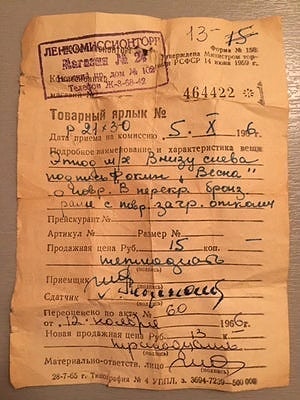 13 - 15
ЛЕНКОМИССИОНТОРГ
Магазин № 24
Телефон Ж-8-68-42
Форма № 150
РСФСР 14 июня 1960 г.
464422 *
Товарный ярлык №
р. 21×30
Дата приема на комиссию 5. X 1966
Подробное наименование и характеристика вещи
Этюд м/х Внизу слева
подпись Фокин „Весна"
В перекр. бронз.
раме с повр. загр.
Прейскурант №
Артикул № Размер №
Продажная цена Руб. 15 коп. —
пятнадцать
(подпись)
Приемщик
(подпись)
Сдатчик
(подпись)
Переоценено по акту № 60
от „12" ноября 1966 г.
Новая продажная цена Руб. 13 к. —
тринадцать
(подпись)
Материально-ответств. лицо
28-7-65 г. Типография № 4 УППЛ, з. 3694-7239—500 000